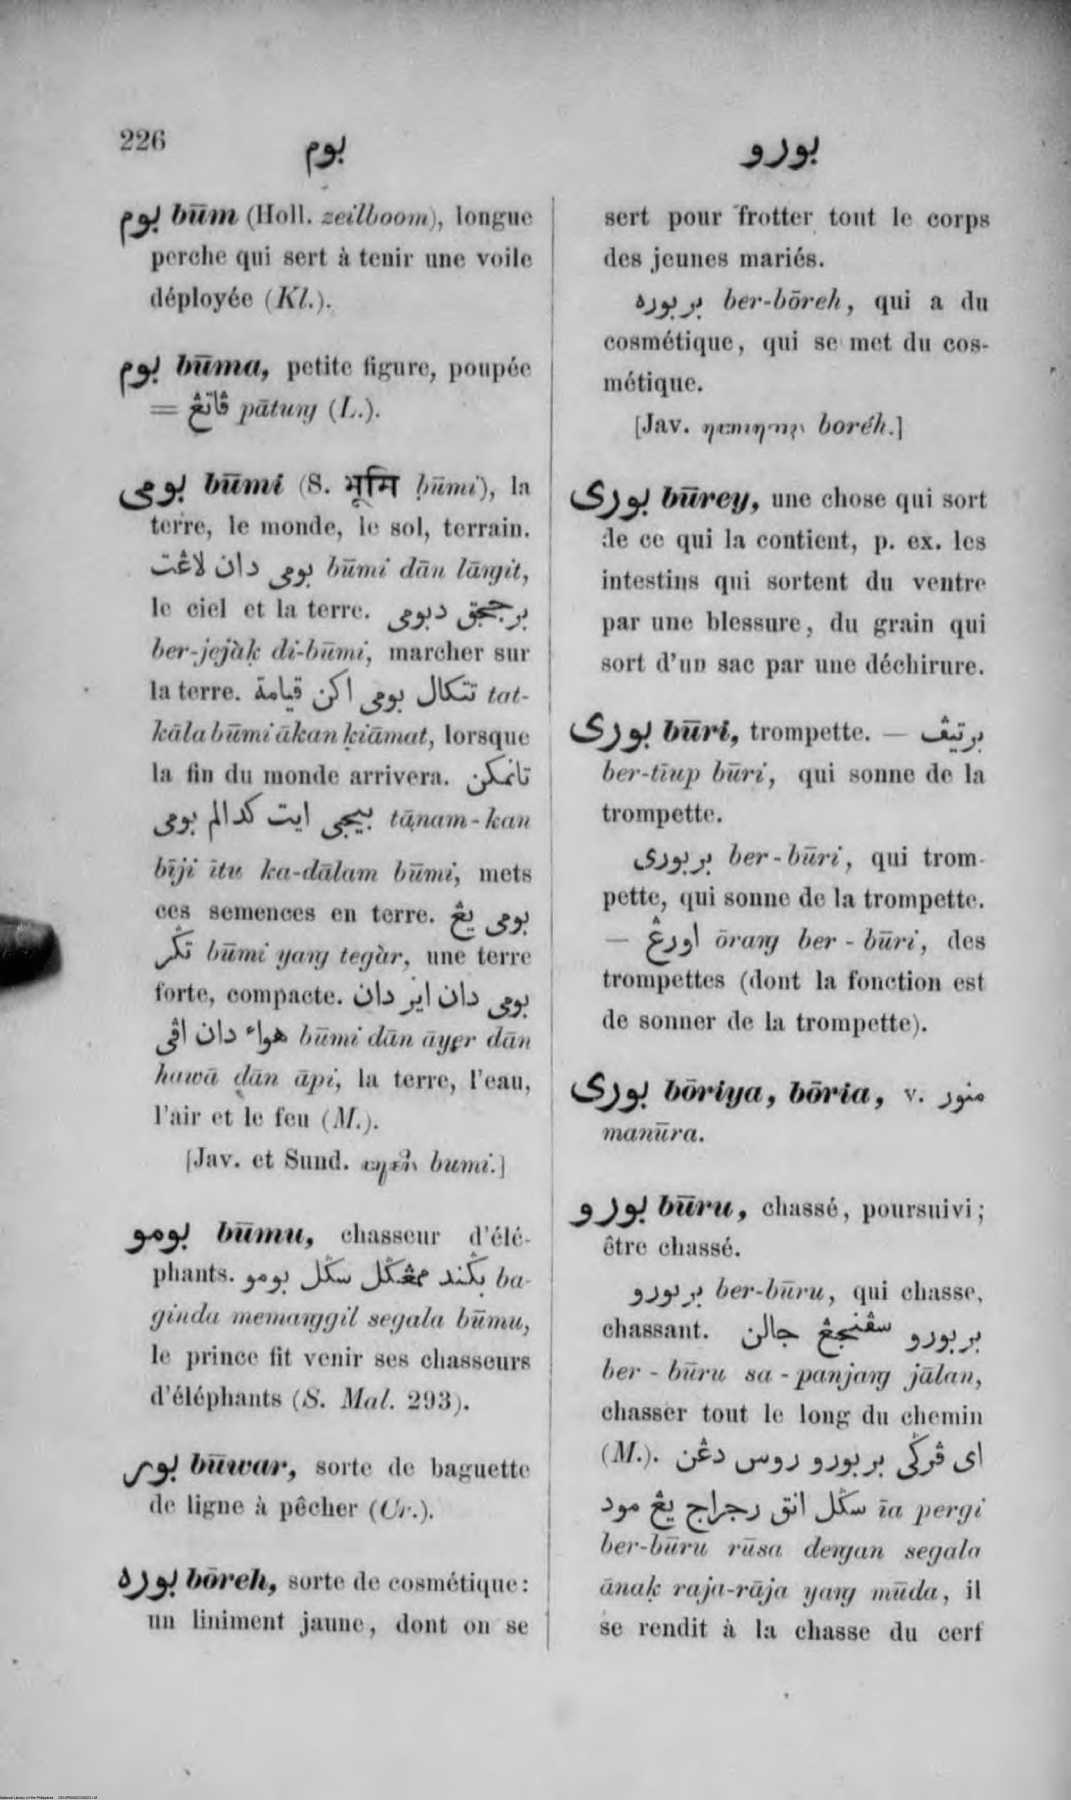 226
بوم
بورو
بوم būm (Holl. zeilboom), longue
perche qui sert à tenir une voile
déployée (Kl.).
بوم būma, petite figure, poupée
= ڤاتڠ pātuŋ (L.).
بومی būmi (S. भूमि ḅūmi), la
terre, le monde, le sol, terrain.
بومی دان لاڠت būmi dān lāŋit,
le ciel et la terre. برججق دبومی
ber-jejàḳ di-būmi, marcher sur
la terre. تتكال بومی اكن قيامة tat-
kāla būmi ākan ḳiāmat, lorsque
la fin du monde arrivera. تانمكن
بيجی ايت كدالم بومی tānam-kan
bīji ītu ka-dālam būmi, mets
ces semences en terre. بومی يڠ
تڬر būmi yaŋ tegàr, une terre
forte, compacte. بومی دان اير دان
هواء دان اڤی būmi dān āyer dān
hawā dān āpi, la terre, l'eau,
l'air et le feu (M.).
[Jav. et Sund. bumi.]
بومو būmu, chasseur d'élé-
phants. بڬند ممڠڬل سڬل بومو ba-
ginda memaŋgil segala būmu,
le prince fit venir ses chasseurs
d'éléphants (S. Mal. 293).
بور būwar, sorte de baguette
de ligne à pêcher (Cr.).
بوره bōreh, sorte de cosmétique:
un liniment jaune, dont on se
sert pour frotter tout le corps
des jeunes mariés.
بربوره ber-bōreh, qui a du
cosmétique, qui se met du cos-
métique.
[Jav. boréh.]
بوری būrey, une chose qui sort
de ce qui la contient, p. ex. les
intestins qui sortent du ventre
par une blessure, du grain qui
sort d'un sac par une déchirure.
بوری būri, trompette. — برتيڤ
ber-tīup būri, qui sonne de la
trompette.
بربوری ber-būri, qui trom-
pette, qui sonne de la trompette.
— اورڠ ōraŋ ber-būri, des
trompettes (dont la fonction est
de sonner de la trompette).
بوری bōriya, bōria, v. منور
manūra.
بورو būru, chassé, poursuivi;
être chassé.
بربورو ber-būru, qui chasse,
chassant. بربورو سڤنجڠ جالن
ber-būru sa-panjaŋ jālan,
chasser tout le long du chemin
(M.). ای ڤرڬی بربورو روس دڠن
سڬل انق رجراج يڠ مود īa pergi
ber-būru rūsa deŋan segala
ānaḳ raja-rāja yaŋ mūda, il
se rendit à la chasse du cerf